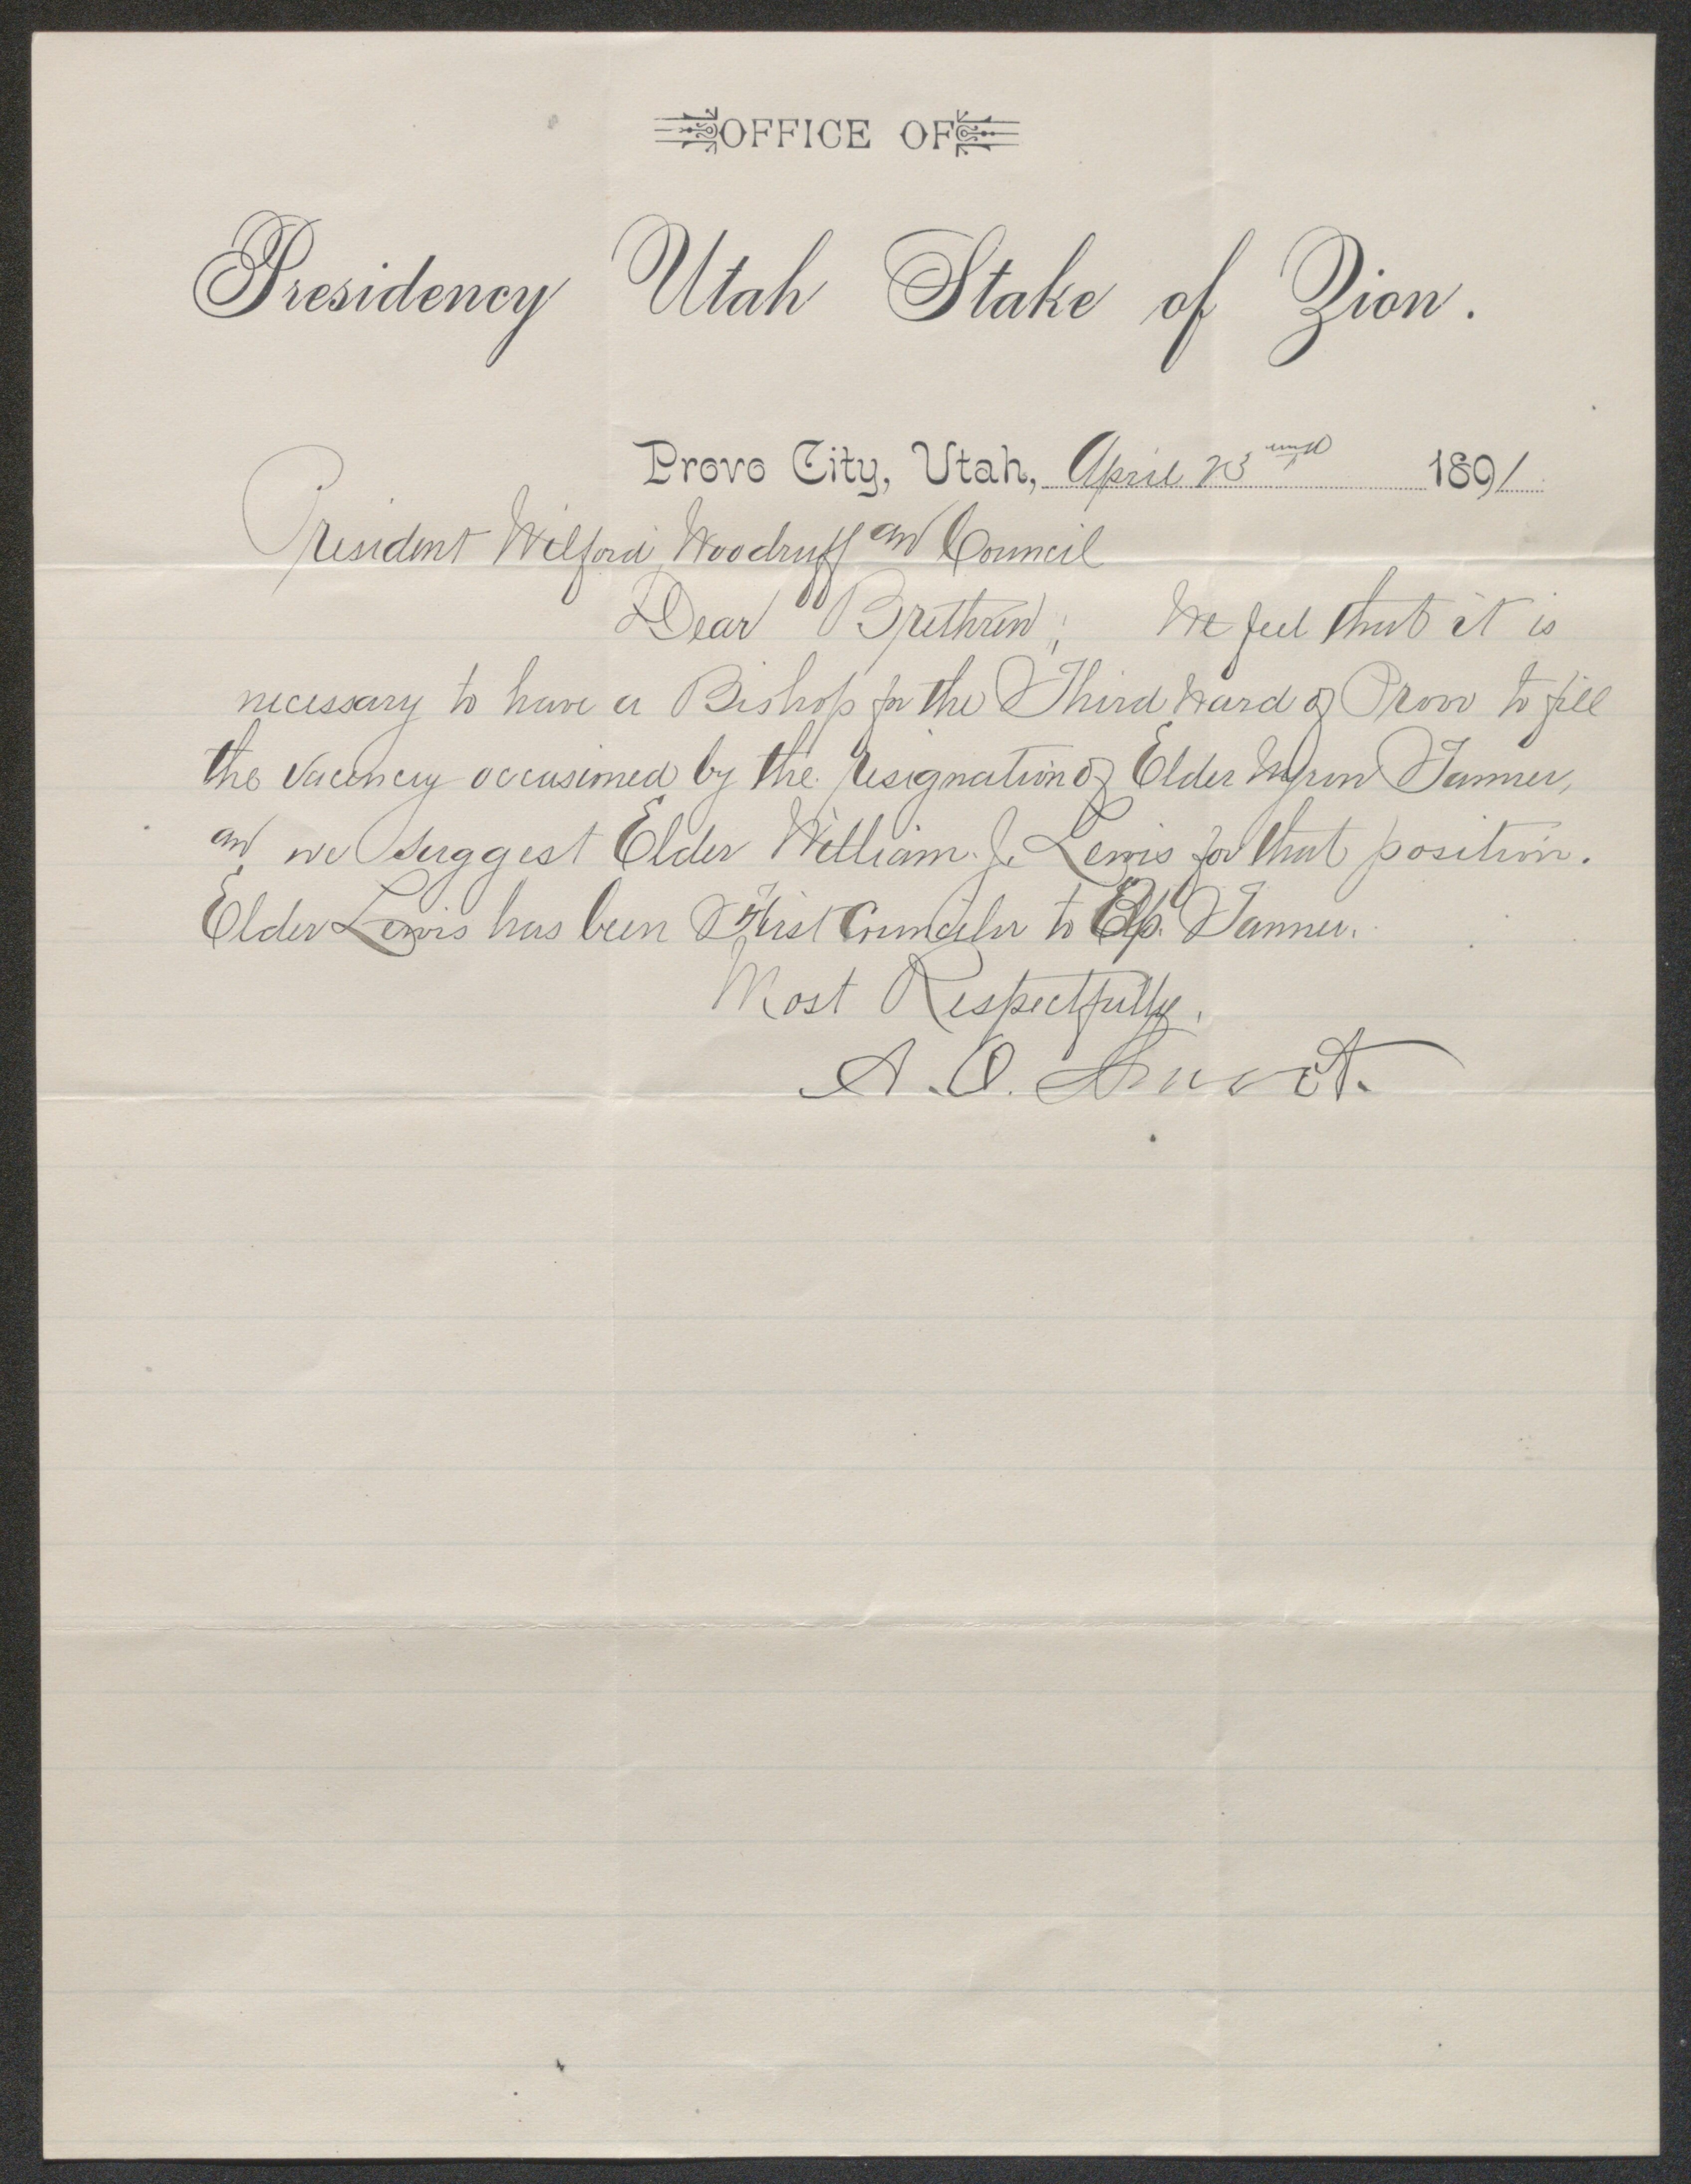 OFFICE OF
Presidency Utah Stake of Zion.
Provo City, Utah, April 23 1891
President Wilford Woodruff and Council
Dear Brethren; We feel that it is
necessary to have a Bishop for the Third Ward of Provo to fill
the vacency occasioned by the resignation of Elder Myron Tanner,
and we suggest Elder William J. Lewis for that position.
Elder Lewis has been First Councilor to Bp. Tanner.
Most Respectfully,
A. O. Smoot.